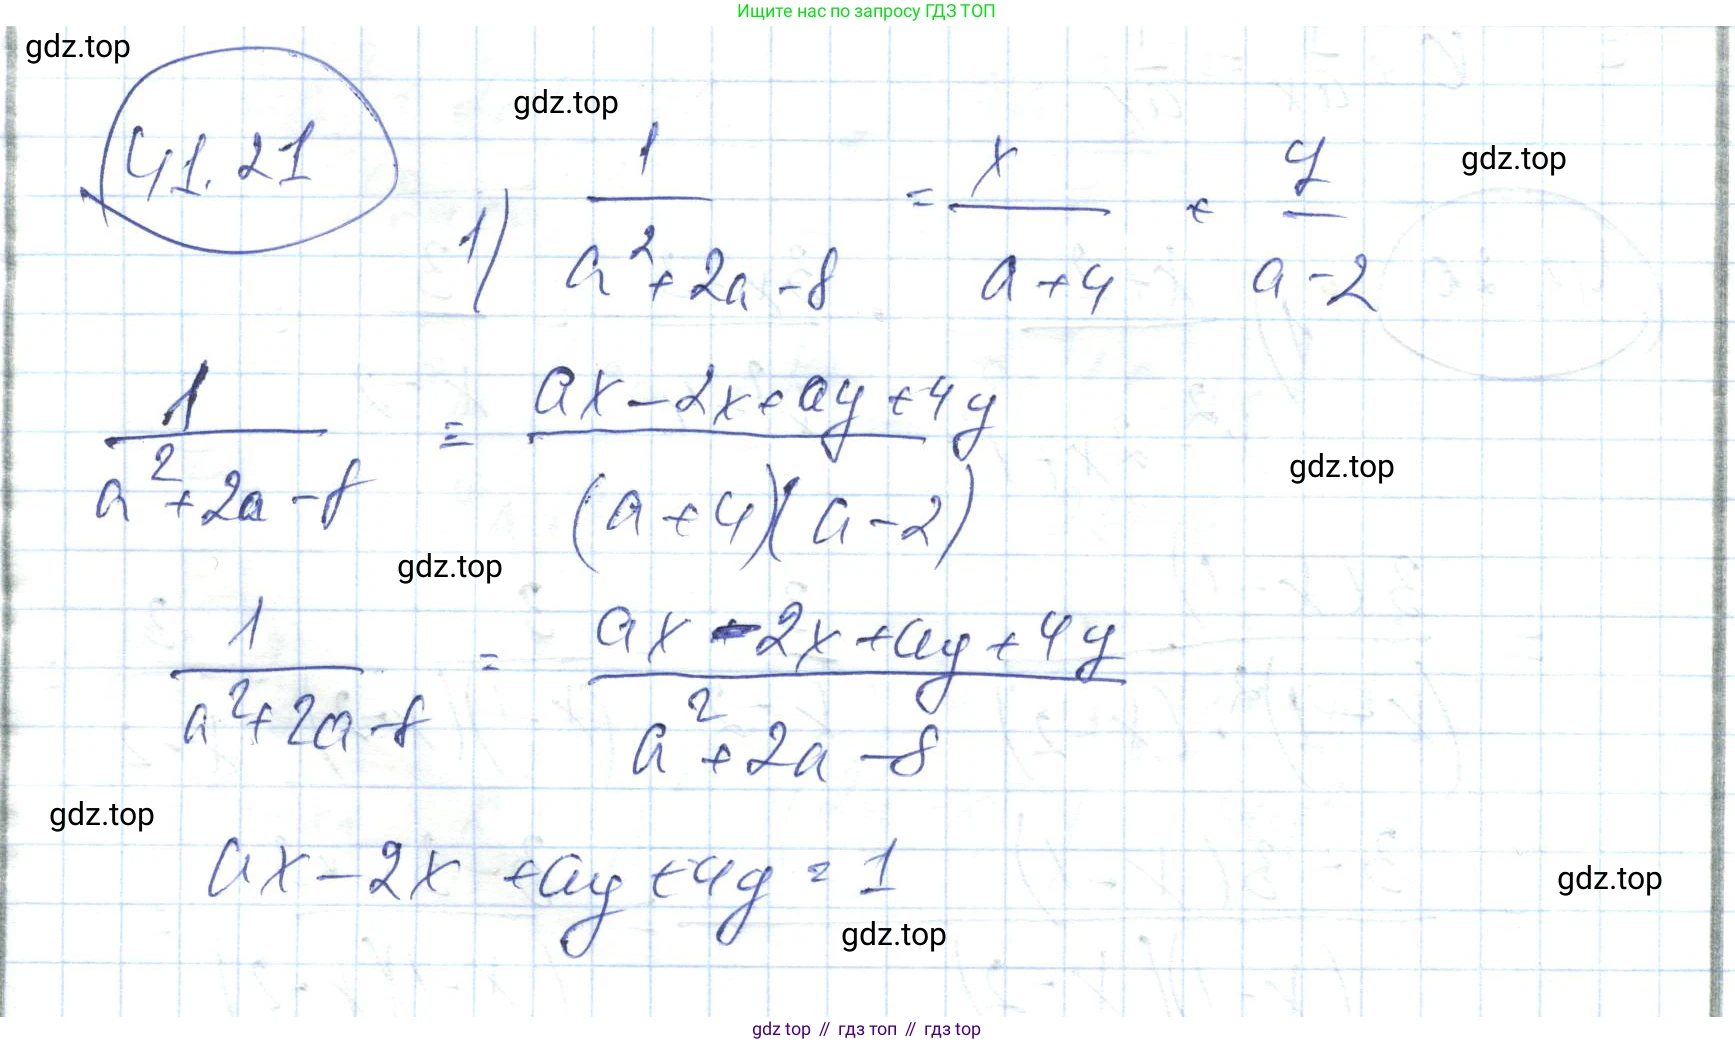 Ищите нас по запросу ГДЗ ТОП
gdz.top
gdz.top
41.21
gdz.top
1) 1/(a²+2a-8) = x/(a+4) + y/(a-2)
1/(a²+2a-8) = (ax-2x+ay+4y)/((a+4)(a-2))
gdz.top
gdz.top
1/(a²+2a-8) = (ax-2x+ay+4y)/(a²+2a-8)
gdz.top
ax-2x+ay+4y=1
gdz.top
gdz.top
gdz top // гдз топ // gdz top